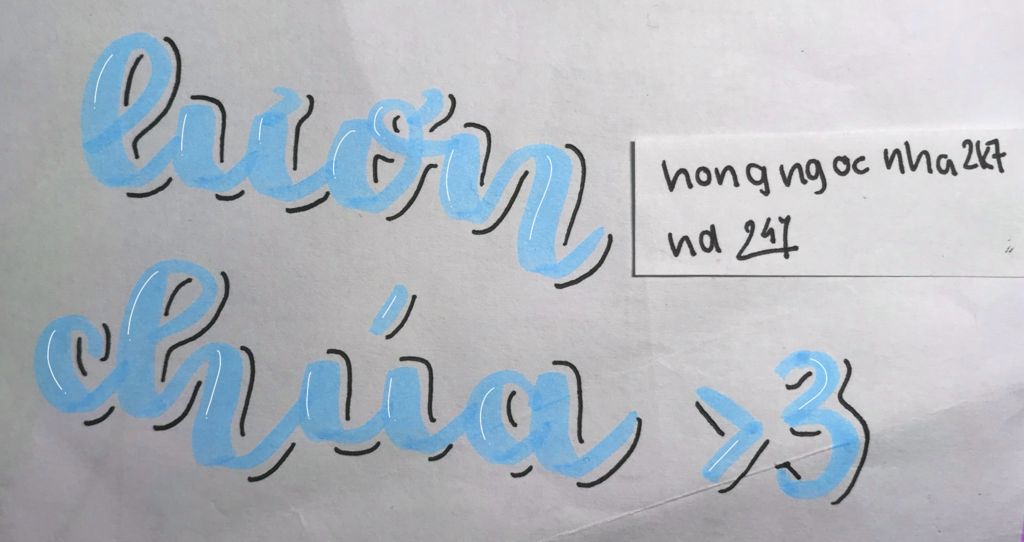 lươn
chúa >3
hong ngoc nha 2k7
nd 247